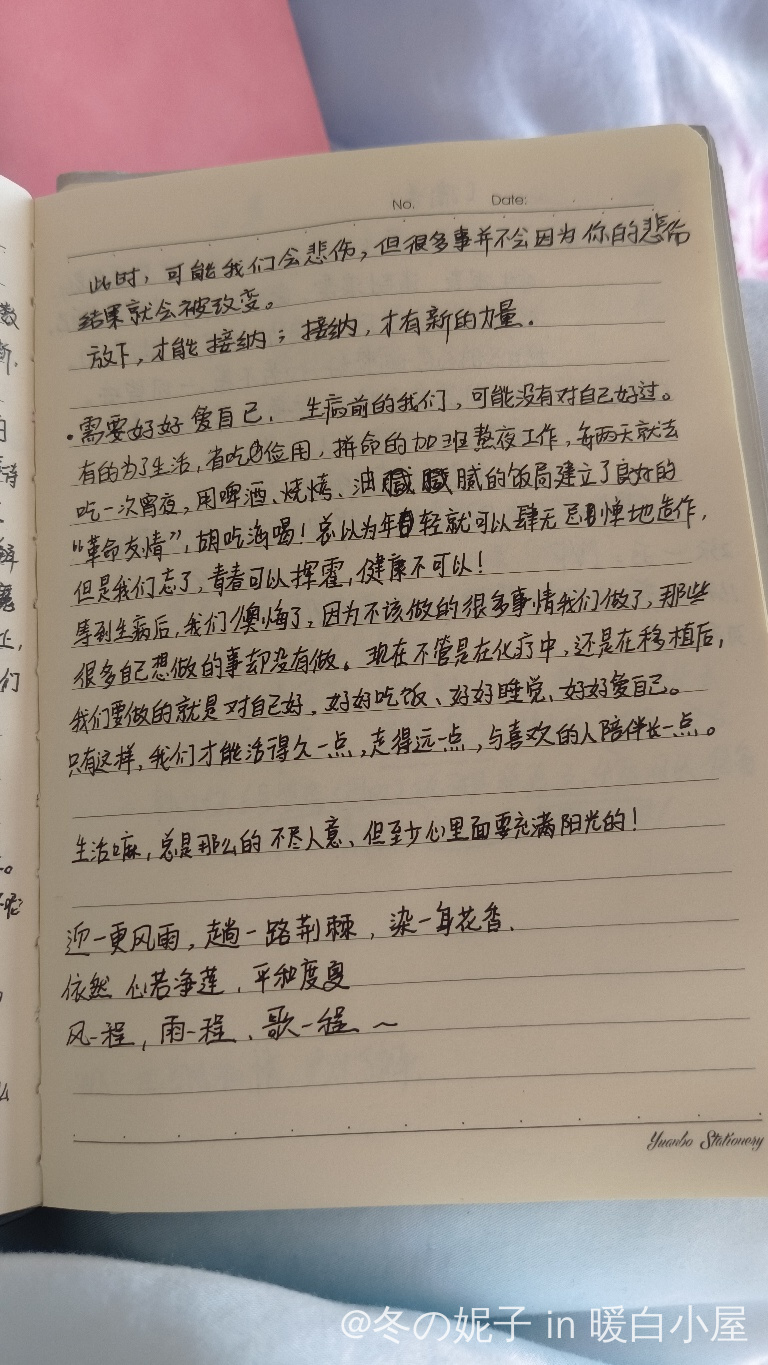 No. Date:
此时，可能我们会悲伤，但很多事并不会因为你的悲伤
结果就会被改变。
放下，才能接纳；接纳，才有新的力量.
·需要好好爱自己. 生病前的我们，可能没有对自己好过。
有的为了生活，省吃俭用，拼命的加班熬夜工作，每两天就去
吃一次宵夜，用啤酒、烧烤、油腻的饭局建立了良好的
“革命友情”，胡吃海喝！总以为年轻就可以肆无忌惮地造作，
但是我们忘了，青春可以挥霍，健康不可以！
等到生病后，我们懊悔了，因为不该做的很多事情我们做了，那些
很多自己想做的事却没有做。现在不管是在化疗中，还是在移植后，
我们要做的就是对自己好，好好吃饭、好好睡觉、好好爱自己。
只有这样，我们才能活得久一点，走得远一点，与喜欢的人陪伴长一点。
生活嘛，总是那么的不尽人意、但至少心里面要充满阳光的！
迎一更风雨，趟一路荆棘，染一身花香.
依然 心若净莲，平和度夏
风一程，雨一程、歌一程～
Yuanbo Stationery
@冬の妮子 in 暖白小屋